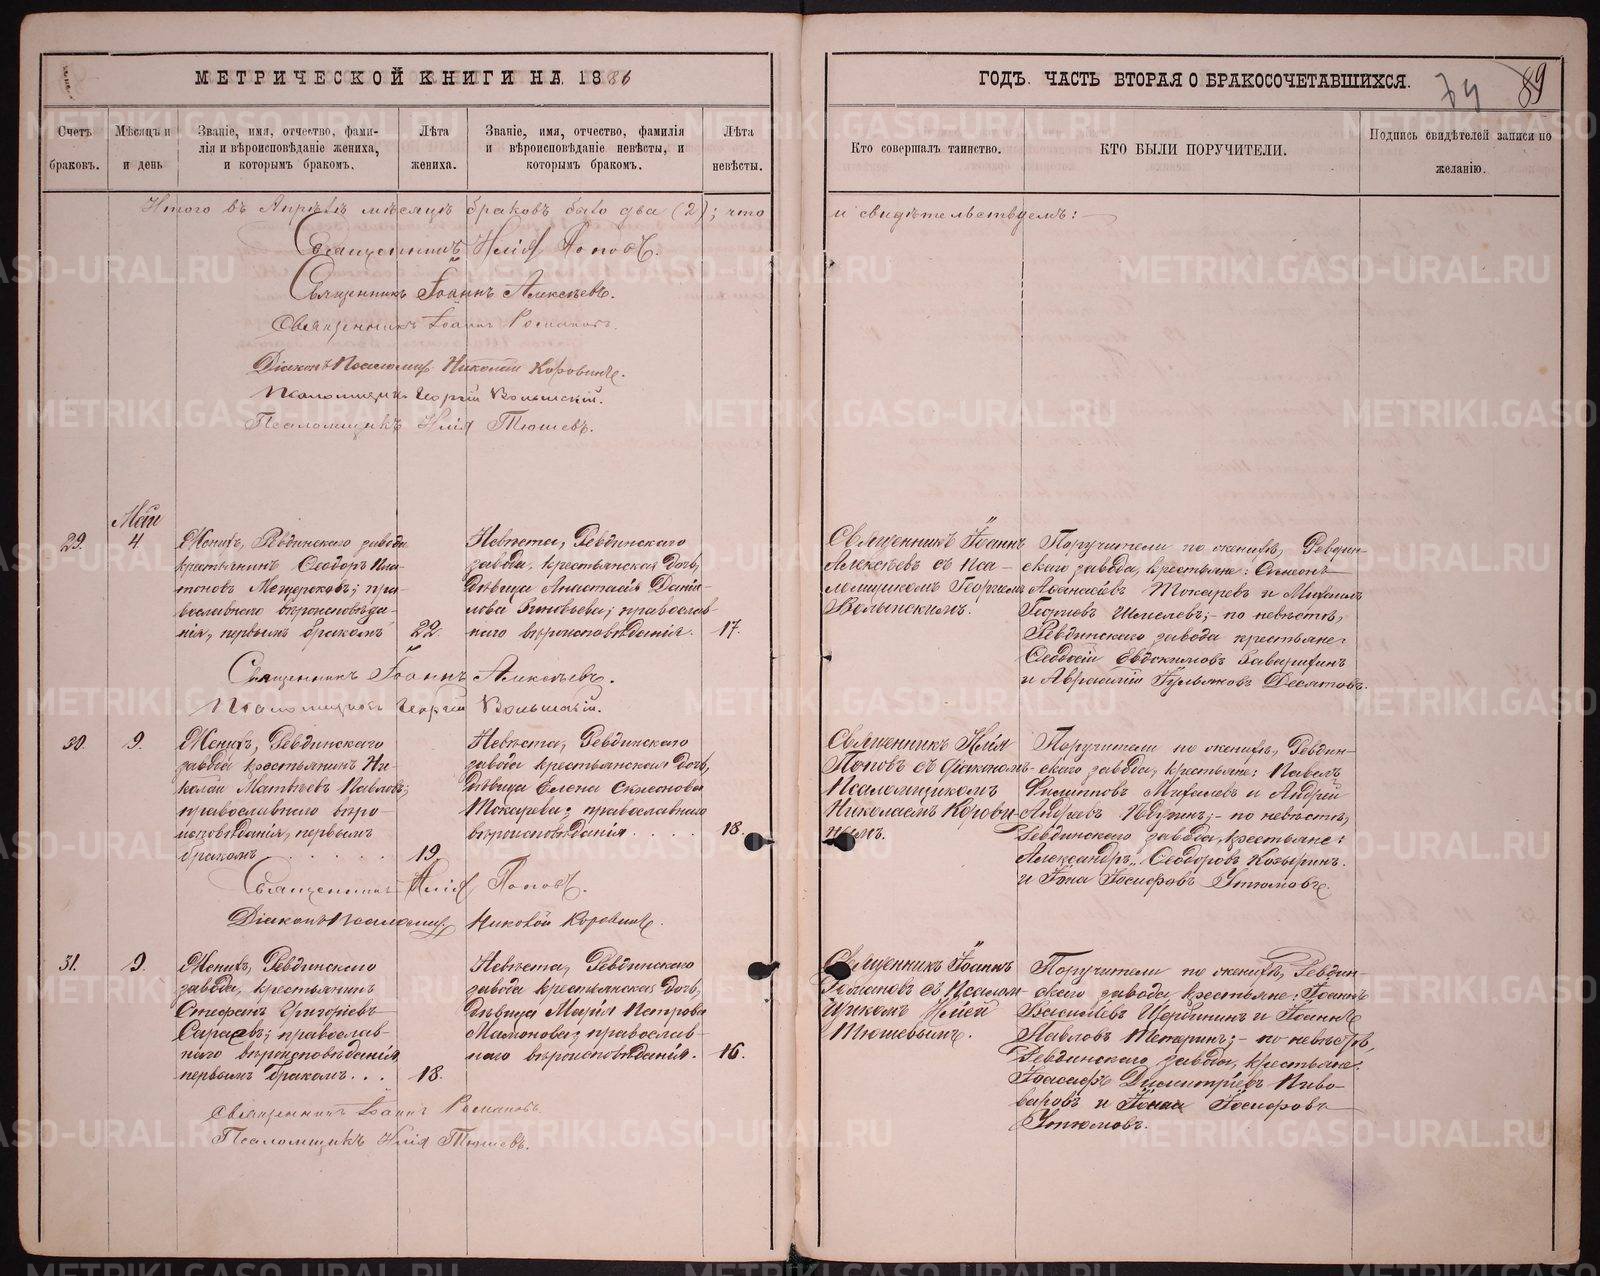 МЕТРИЧЕСКОЙ КНИГИ НА 1886
ГОДЪ. ЧАСТЬ ВТОРАЯ О БРАКОСОЧЕТАВШИХСЯ.
74 89
Счетъ браковъ.
Мѣсяцъ и и день
Званіе, имя, отчество, фами-
лія и вѣроисповѣданіе жениха,
и которымъ бракомъ.
Лѣта жениха.
Званіе, имя, отчество, фамилія
и вѣроисповѣданіе невѣсты, и
которымъ бракомъ.
Лѣта невѣсты.
Кто совершалъ таинство.
КТО БЫЛИ ПОРУЧИТЕЛИ.
Подпись свидѣтелей записи по
желанію.
Итого въ Апрѣлѣ мѣсяцѣ браковъ было два (2); что
и свидѣтельствуемъ:
Священникъ Илія Поповъ.
Священникъ Іоаннъ Алексѣевъ.
Священникъ Іоаннъ Романовъ.
Діаконъ Псаломщ. Николай Коровинъ.
Псаломщикъ Георгій Волынскій.
Псаломщикъ Илія Тюшевъ.
Май
29.
4.
Женихъ, Ревдинскаго завода
крестьянинъ Ѳеодоръ Пла-
тоновъ Мещеряковъ; пра-
вославнаго вѣроисповѣда-
нія, первымъ бракомъ
22.
Невѣста, Ревдинскаго
завода, крестьянская дочь,
дѣвица Анастасія Дані-
лова Зиновьева; православ-
наго вѣроисповѣданія.
17.
Священникъ Іоаннъ
Алексѣевъ съ Пса-
ломщикомъ Георгіемъ
Волынскимъ.
Поручители по женихѣ, Ревдин-
скаго завода, крестьяне: Симеонъ
Аѳанасіевъ Токаревъ и Михаилъ
Георгіевъ Шмелевъ;- по невѣстѣ,
Ревдинскаго завода крестьяне:
Ѳеодосій Евдокимовъ
и Десятовъ.
Священникъ Іоаннъ Алексѣевъ.
Псаломщикъ Георгій Волынскій.
30.
9.
Женихъ, Ревдинскаго
завода крестьянинъ Ни-
колай Матвѣевъ Павловъ;
православнаго вѣро-
исповѣданія, первымъ
бракомъ . . . . . .
19.
Невѣста, Ревдинскаго
завода крестьянская дочь,
дѣвица Елена Симеонова
Токарева; православнаго
вѣроисповѣданія. . . . .
18.
Священникъ Илія
Поповъ съ діакономъ
Псаломщикомъ
Николаемъ Корови-
нымъ.
Поручители по женихѣ, Ревдин-
скаго завода, крестьяне: Павелъ
Филипповъ и Андрей
Андреевъ по невѣстѣ,
Ревдинскаго завода, крестьяне:
Александръ Ѳеодоровъ Козыринъ
и Іона Іосифовъ Утюмовъ.
Священникъ Илія Поповъ.
Діаконъ Псаломщ. Николай Коровинъ.
31.
9.
Женихъ, Ревдинскаго
завода, крестьянинъ
Стефанъ Григорьевъ
Сараевъ; православ-
наго вѣроисповѣданія,
первымъ бракомъ. . .
18.
Невѣста, Ревдинскаго
завода крестьянская дочь,
дѣвица Марія Петрова
Мамонова; православ-
наго вѣроисповѣданія.
16.
Священникъ Іоаннъ
Романовъ съ Псалом-
щикомъ Иліей
Тюшевымъ.
Поручители по женихѣ, Ревдин-
скаго завода крестьяне: Іоаннъ
Васильевъ Щербининъ и Іоаннъ
Павловъ по невѣстѣ,
Ревдинскаго завода, крестьяне:
Іоасафъ Димитріевъ Пиво-
варовъ и Іона Іосифовъ
Утюмовъ.
Священникъ Іоаннъ Романовъ.
Псаломщикъ Илія Тюшевъ.
METRIKI.GASO-URAL.RU